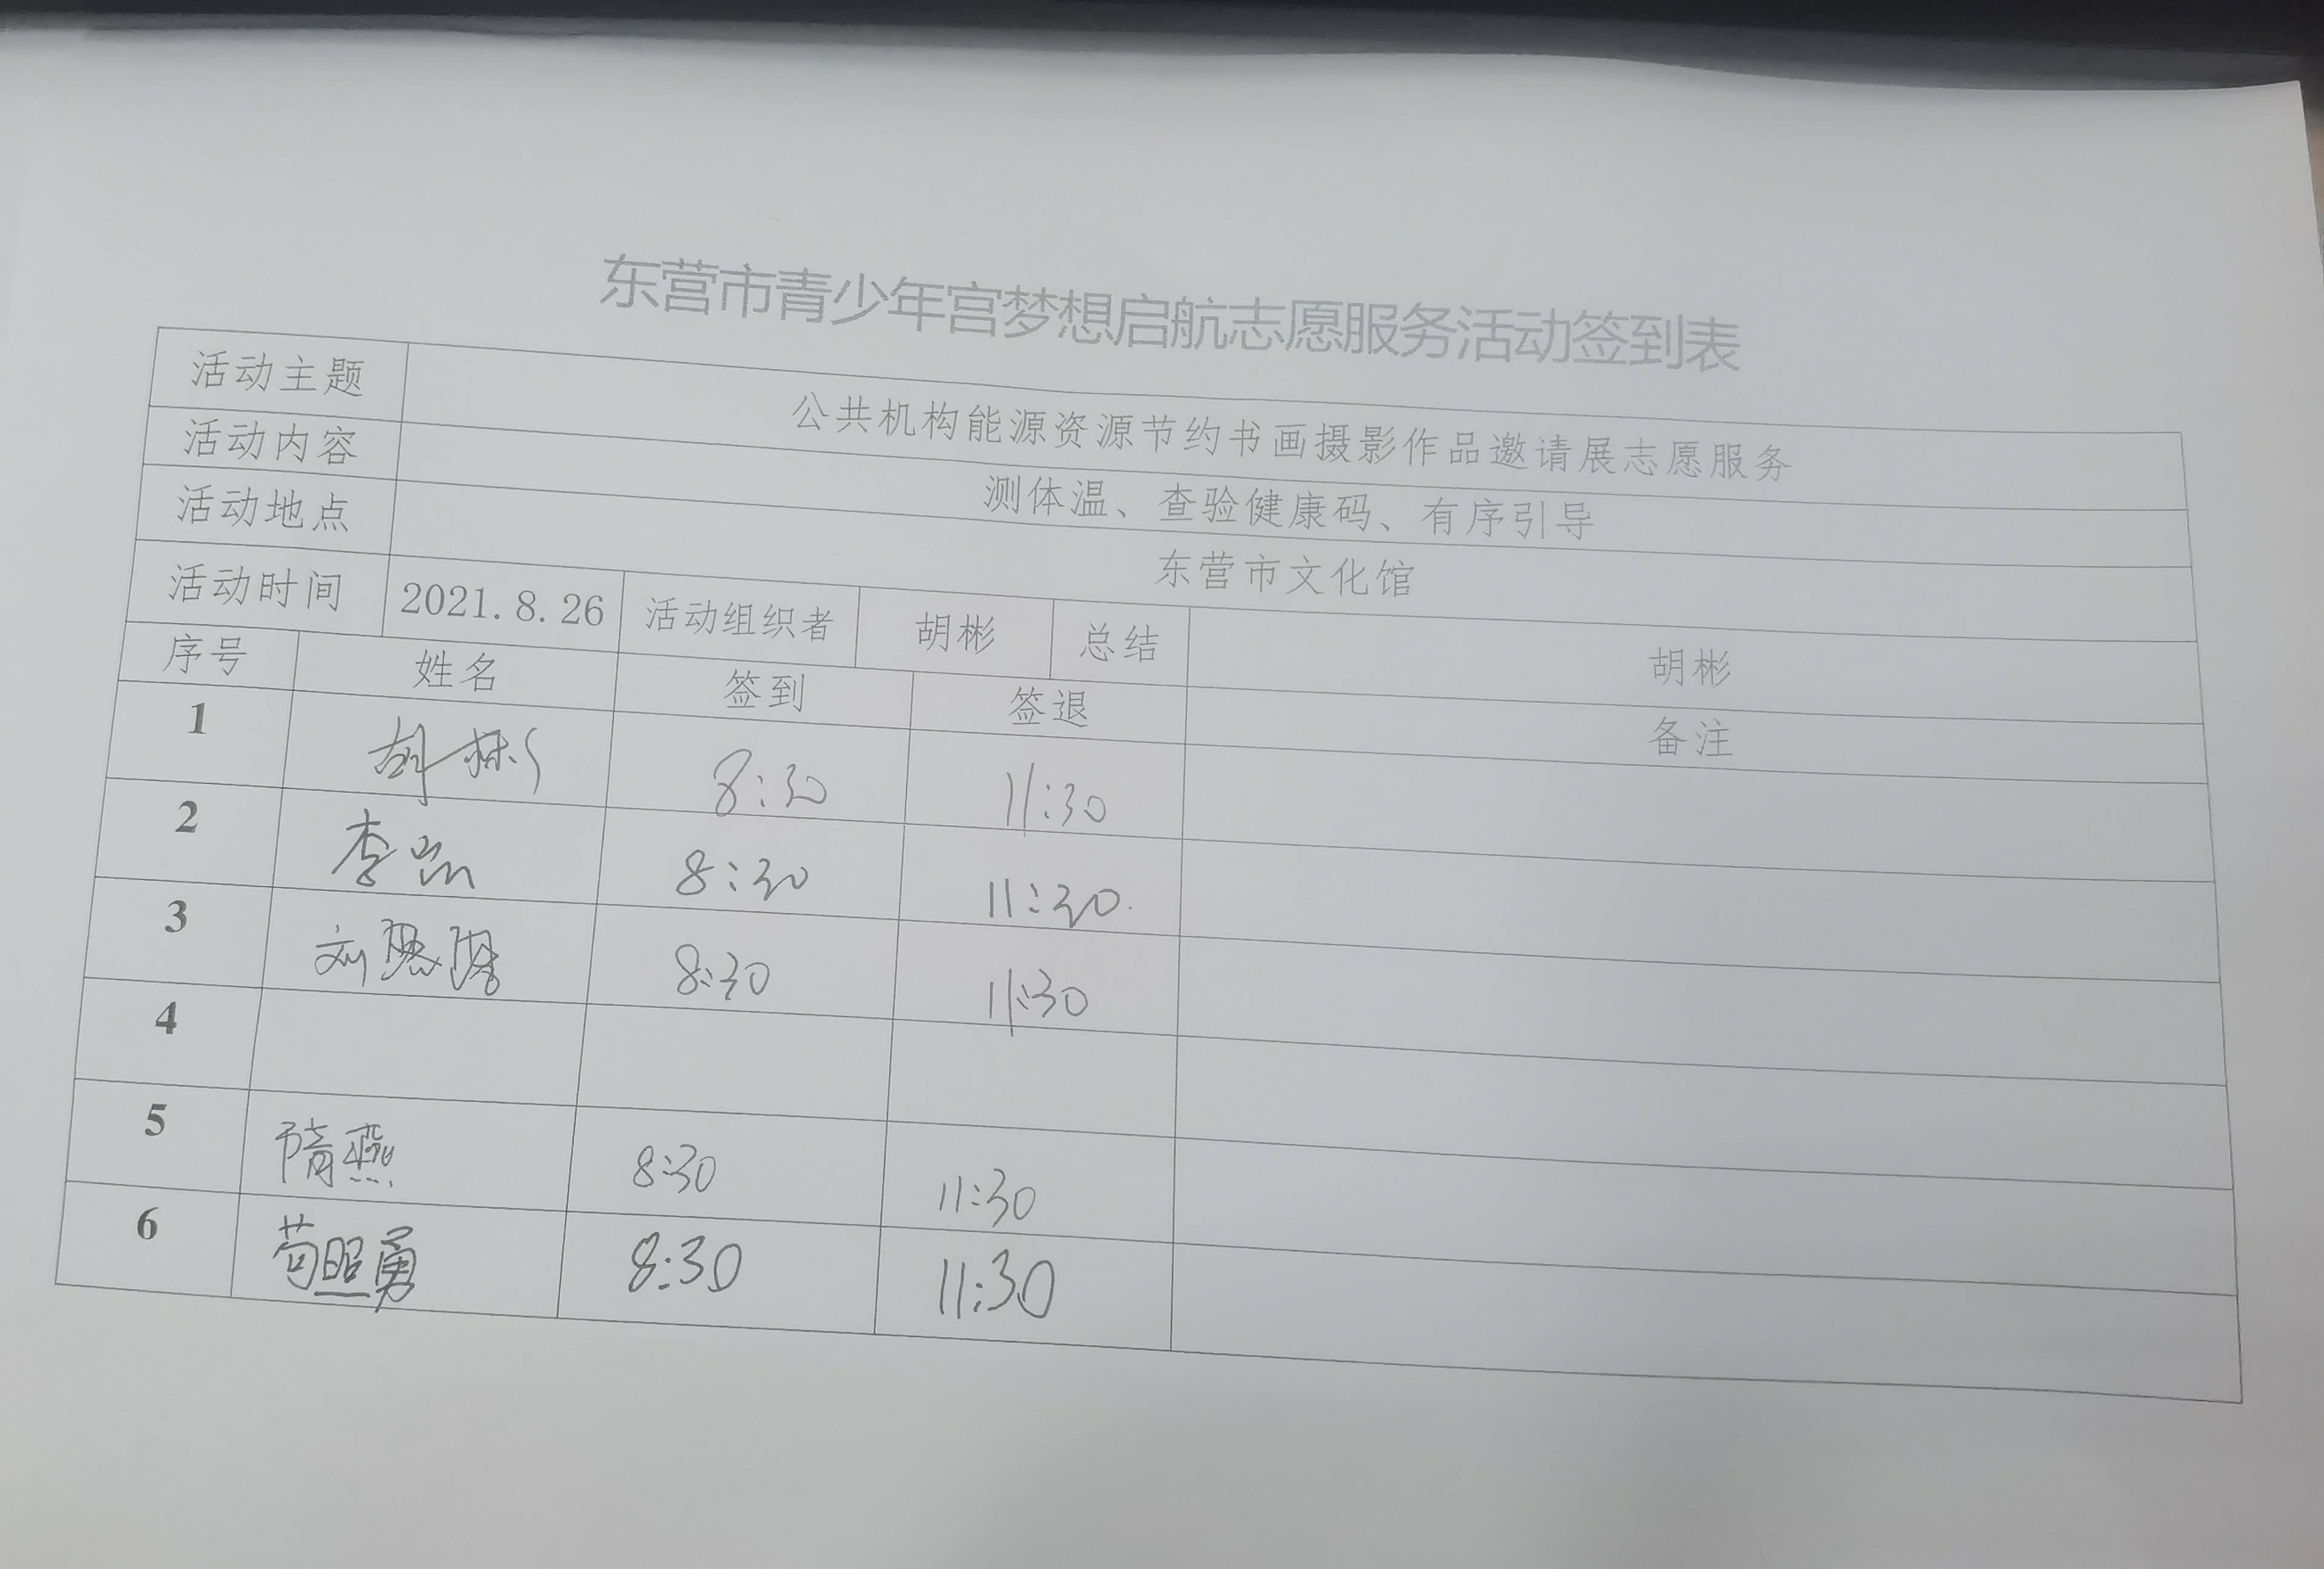 东营市青少年宫梦想启航志愿服务活动签到表
活动主题 公共机构能源资源节约书画摄影作品邀请展志愿服务
活动内容 测体温、查验健康码、有序引导
活动地点 东营市文化馆
活动时间 2021.8.26 活动组织者 胡彬 总结 胡彬
序号 姓名 签到 签退 备注
1 胡彬 8:30 11:30
2 李 8:30 11:30
3 刘 8:30 11:30
4
5 隋燕 8:30 11:30
6 苟照勇 8:30 11:30